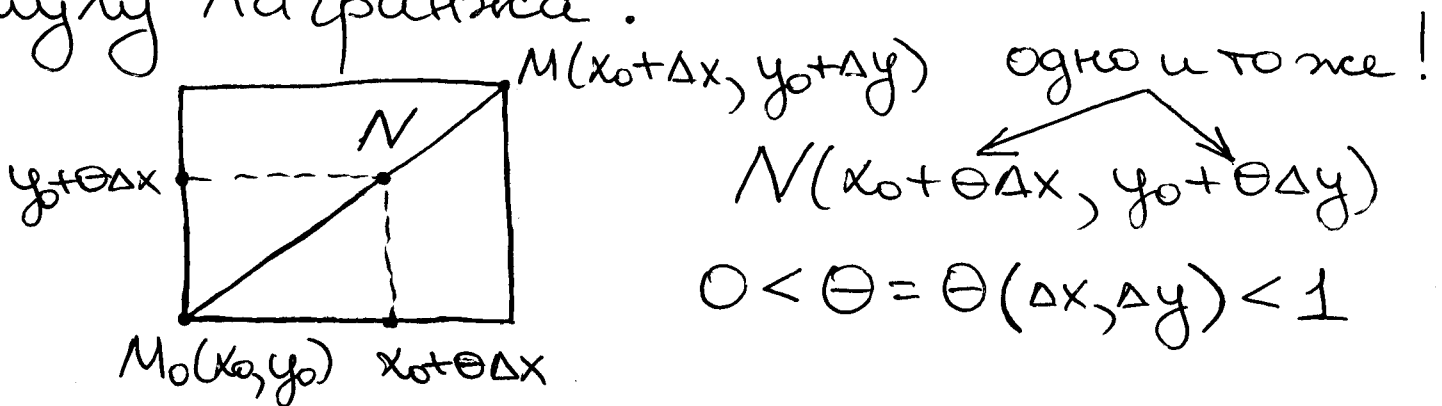 Лагранжа.
M(x₀+Δx, y₀+Δy) одно и то же!
N
y₀+θΔx
N(x₀+θΔx, y₀+θΔy)
0 < θ = θ(Δx, Δy) < 1
M₀(x₀, y₀) x₀+θΔx